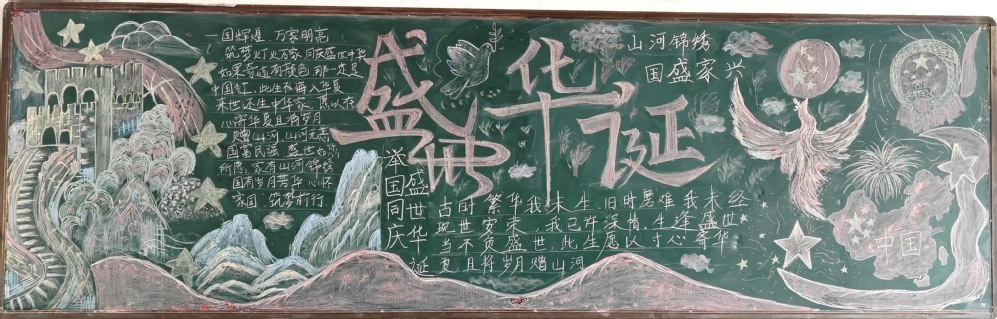 一国辉煌 万家明亮
筑梦灯火万家 同庆盛世中华
如果奇迹有颜色 那一定是
中国红,此生不悔入华夏
来世还生中华家 愿以寸
心寄华夏且将岁月
赠山河 山河无恙
国富民强 盛世如您
所愿,家有山河锦绣
国有岁月菁华 心怀
家国 筑梦前行
盛世华诞
山河锦绣
国盛家兴
举国同庆
盛世华诞
古时繁华我未生 旧时磨难我未经
现世安来,我已许深情,生逢盛世
当不负盛世 此生愿以寸心寄华
夏且将岁月赠山河
中国